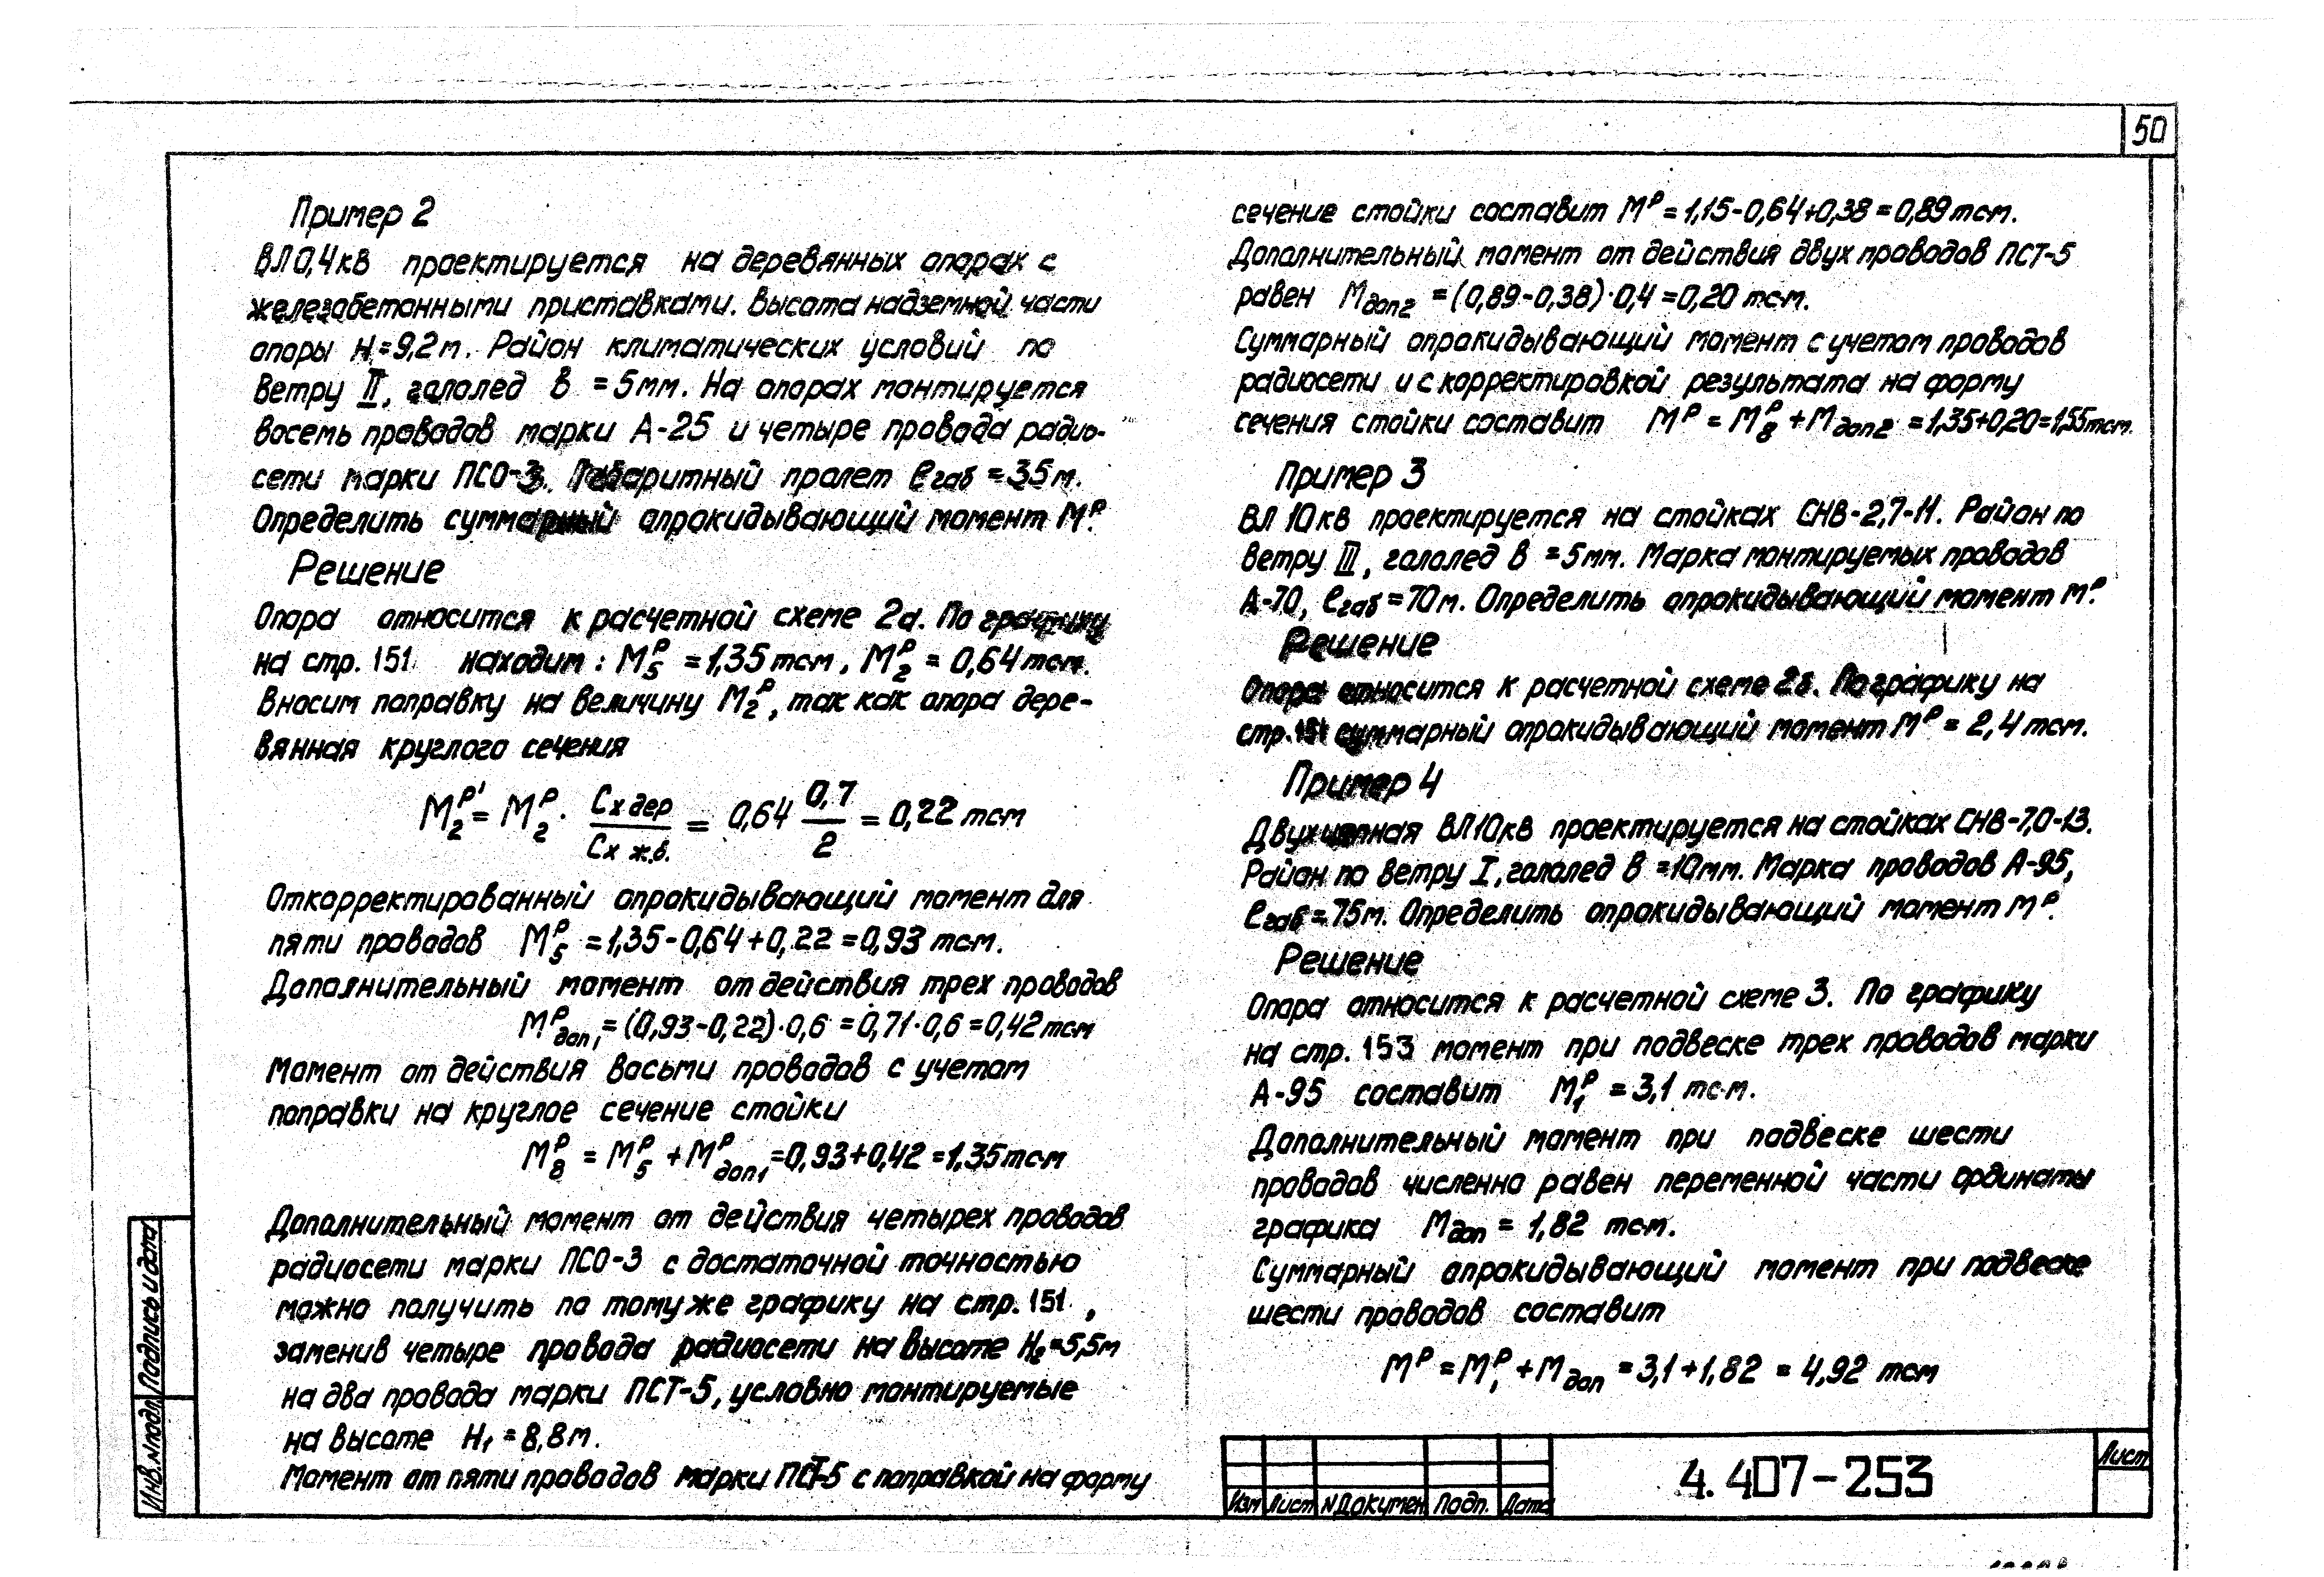 50
Пример 2
ВЛ 0,4кВ проектируется на деревянных опорах с
железобетонными приставками. Высота надземной части
опоры H=9,2м. Район климатических условий по
ветру II, гололед в = 5мм. На опорах монтируется
восемь проводов марки А-25 и четыре провода радио-
сети марки ПСО-3. Габаритный пролет ℓгаб = 35м.
Определить суммарный опрокидывающий момент Mᵖ.
Решение
Опора относится к расчетной схеме 2а. По графику
на стр. 151 находим: Mᵖ₅ = 1,35 тсм, Mᵖ₂ = 0,64 тсм.
Вносим поправку на величину Mᵖ₂, так как опора дере-
вянная круглого сечения
Mᵖ'₂ = Mᵖ₂ · Сх дер / Сх ж.б. = 0,64 0,7/2 = 0,22 тсм
Откорректированный опрокидывающий момент для
пяти проводов Mᵖ₅ = 1,35-0,64+0,22=0,93 тсм.
Дополнительный момент от действия трех проводов
Mᵖдоп₁ = (0,93-0,22)·0,6 = 0,71·0,6 = 0,42 тсм
Момент от действия восьми проводов с учетом
поправки на круглое сечение стойки
Mᵖ₈ = Mᵖ₅ + Mᵖдоп₁ = 0,93+0,42 = 1,35 тсм
Дополнительный момент от действия четырех проводов
радиосети марки ПСО-3 с достаточной точностью
можно получить по тому же графику на стр. 151,
заменив четыре провода радиосети на высоте H₂=5,5м
на два провода марки ПСТ-5, условно монтируемые
на высоте H₁ = 8,8м.
Момент от пяти проводов марки ПСТ-5 с поправкой на форму
сечение стойки составит Mᵖ = 1,15-0,64+0,38 = 0,89 тсм.
Дополнительный момент от действия двух проводов ПСТ-5
равен Mдоп2 = (0,89-0,38)·0,4 = 0,20 тсм.
Суммарный опрокидывающий момент с учетом проводов
радиосети и с корректировкой результата на форму
сечения стойки составит Mᵖ = Mᵖ₈ + Mдоп2 = 1,35+0,20=1,55тсм.
Пример 3
ВЛ 10кВ проектируется на стойках СНВ-2,7-11. Район по
ветру III, гололед в = 5мм. Марка монтируемых проводов
А-70, ℓгаб = 70м. Определить опрокидывающий момент Mᵖ.
Решение
Опора относится к расчетной схеме 2б. По графику на
стр. 151 суммарный опрокидывающий момент Mᵖ = 2,4 тсм.
Пример 4
Двухцепная ВЛ10кВ проектируется на стойках СНВ-7,0-13.
Район по ветру I, гололед в = 10мм. Марка проводов А-95,
ℓгаб = 75м. Определить опрокидывающий момент Mᵖ.
Решение
Опора относится к расчетной схеме 3. По графику
на стр. 153 момент при подвеске трех проводов марки
А-95 составит Mᵖ₁ = 3,1 тсм.
Дополнительный момент при подвеске шести
проводов численно равен переменной части ординаты
графика Mдоп = 1,82 тсм.
Суммарный опрокидывающий момент при подвеске
шести проводов составит
Mᵖ = Mᵖ₁ + Mдоп = 3,1+1,82 = 4,92 тсм
Инв.№подл. Подпись и дата
Изм Лист №Докумен Подп. Дата
4.407-253
Лист